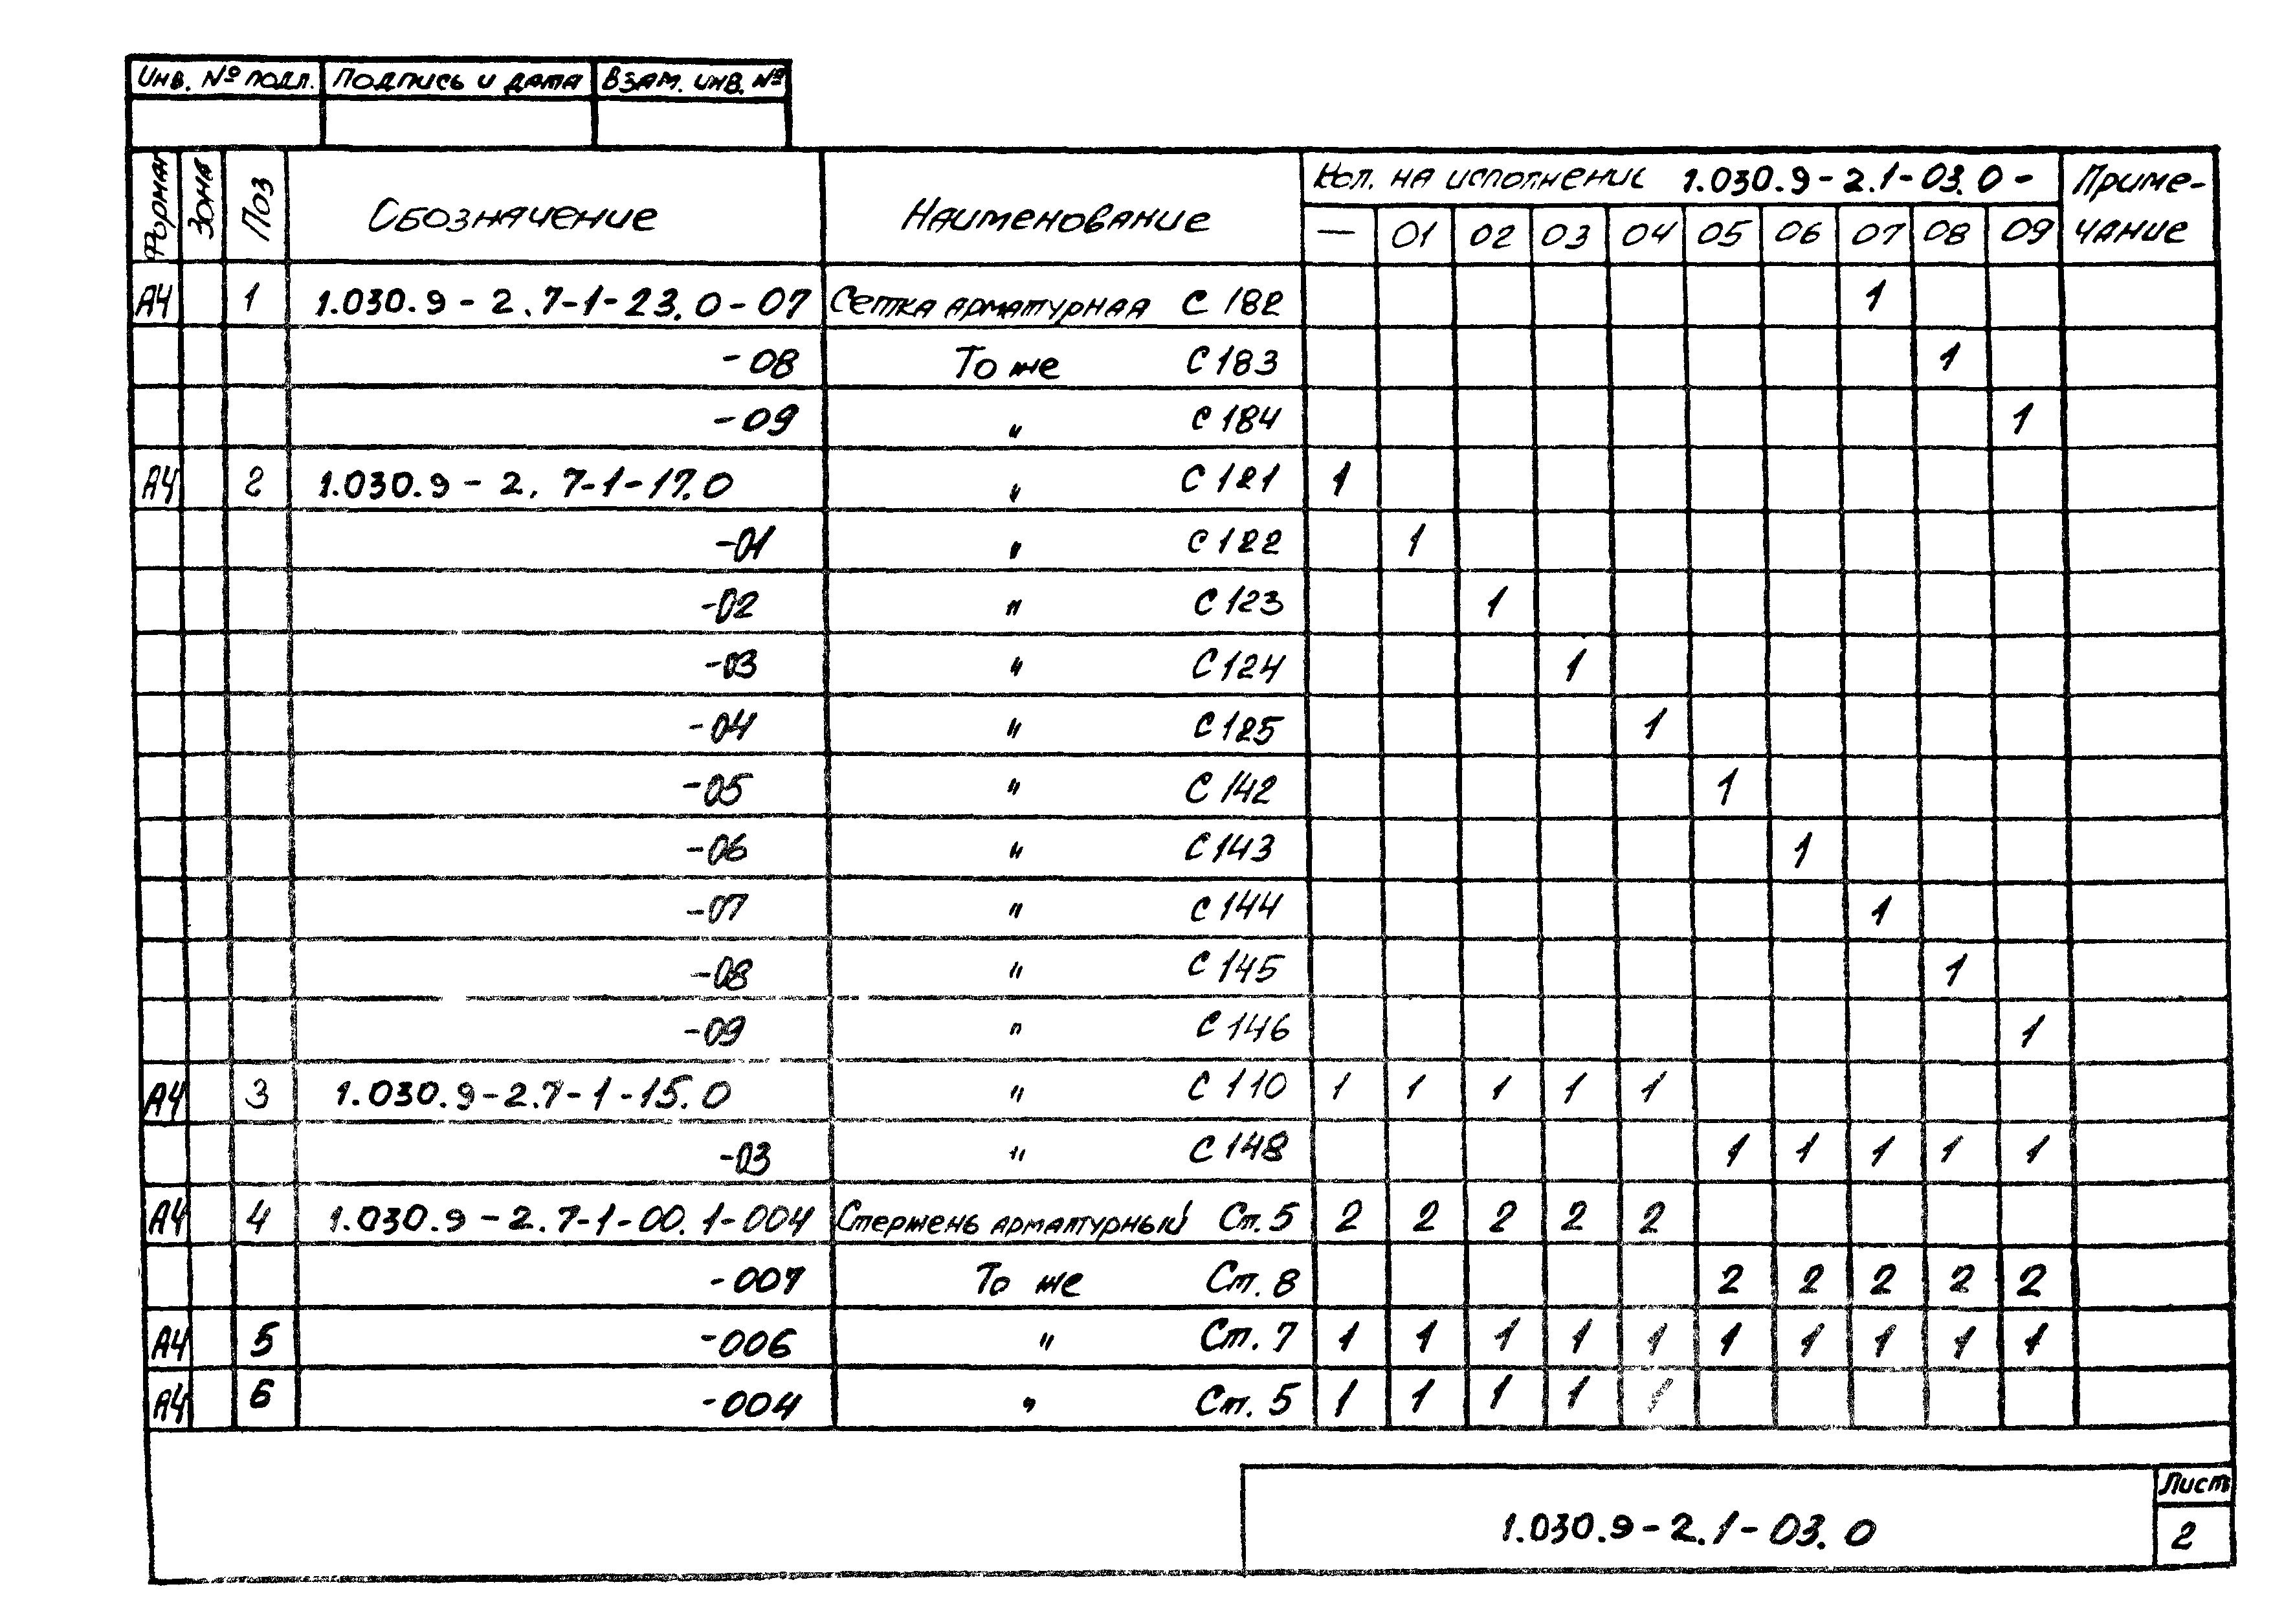 Инв. № подл. Подпись и дата Взам. инв. №
Формат Зона Поз Обозначение Наименование Кол. на исполнение 1.030.9-2.1-03.0- Приме-
— 01 02 03 04 05 06 07 08 09 чание
А4 1 1.030.9-2.7-1-23.0-07 Сетка арматурная С 182 1
-08 То же С 183 1
-09 " С 184 1
А4 2 1.030.9-2.7-1-17.0 " С 121 1
-01 " С 122 1
-02 " С 123 1
-03 " С 124 1
-04 " С 125 1
-05 " С 142 1
-06 " С 143 1
-07 " С 144 1
-08 " С 145 1
-09 " С 146 1
А4 3 1.030.9-2.7-1-15.0 " С 110 1 1 1 1 1
-03 " С 148 1 1 1 1 1
А4 4 1.030.9-2.7-1-00.1-004 Стержень арматурный Ст. 5 2 2 2 2 2
-007 То же Ст. 8 2 2 2 2 2
А4 5 -006 " Ст. 7 1 1 1 1 1 1 1 1 1 1
А4 6 -004 " Ст. 5 1 1 1 1 1
Лист
1.030.9-2.1-03.0 2